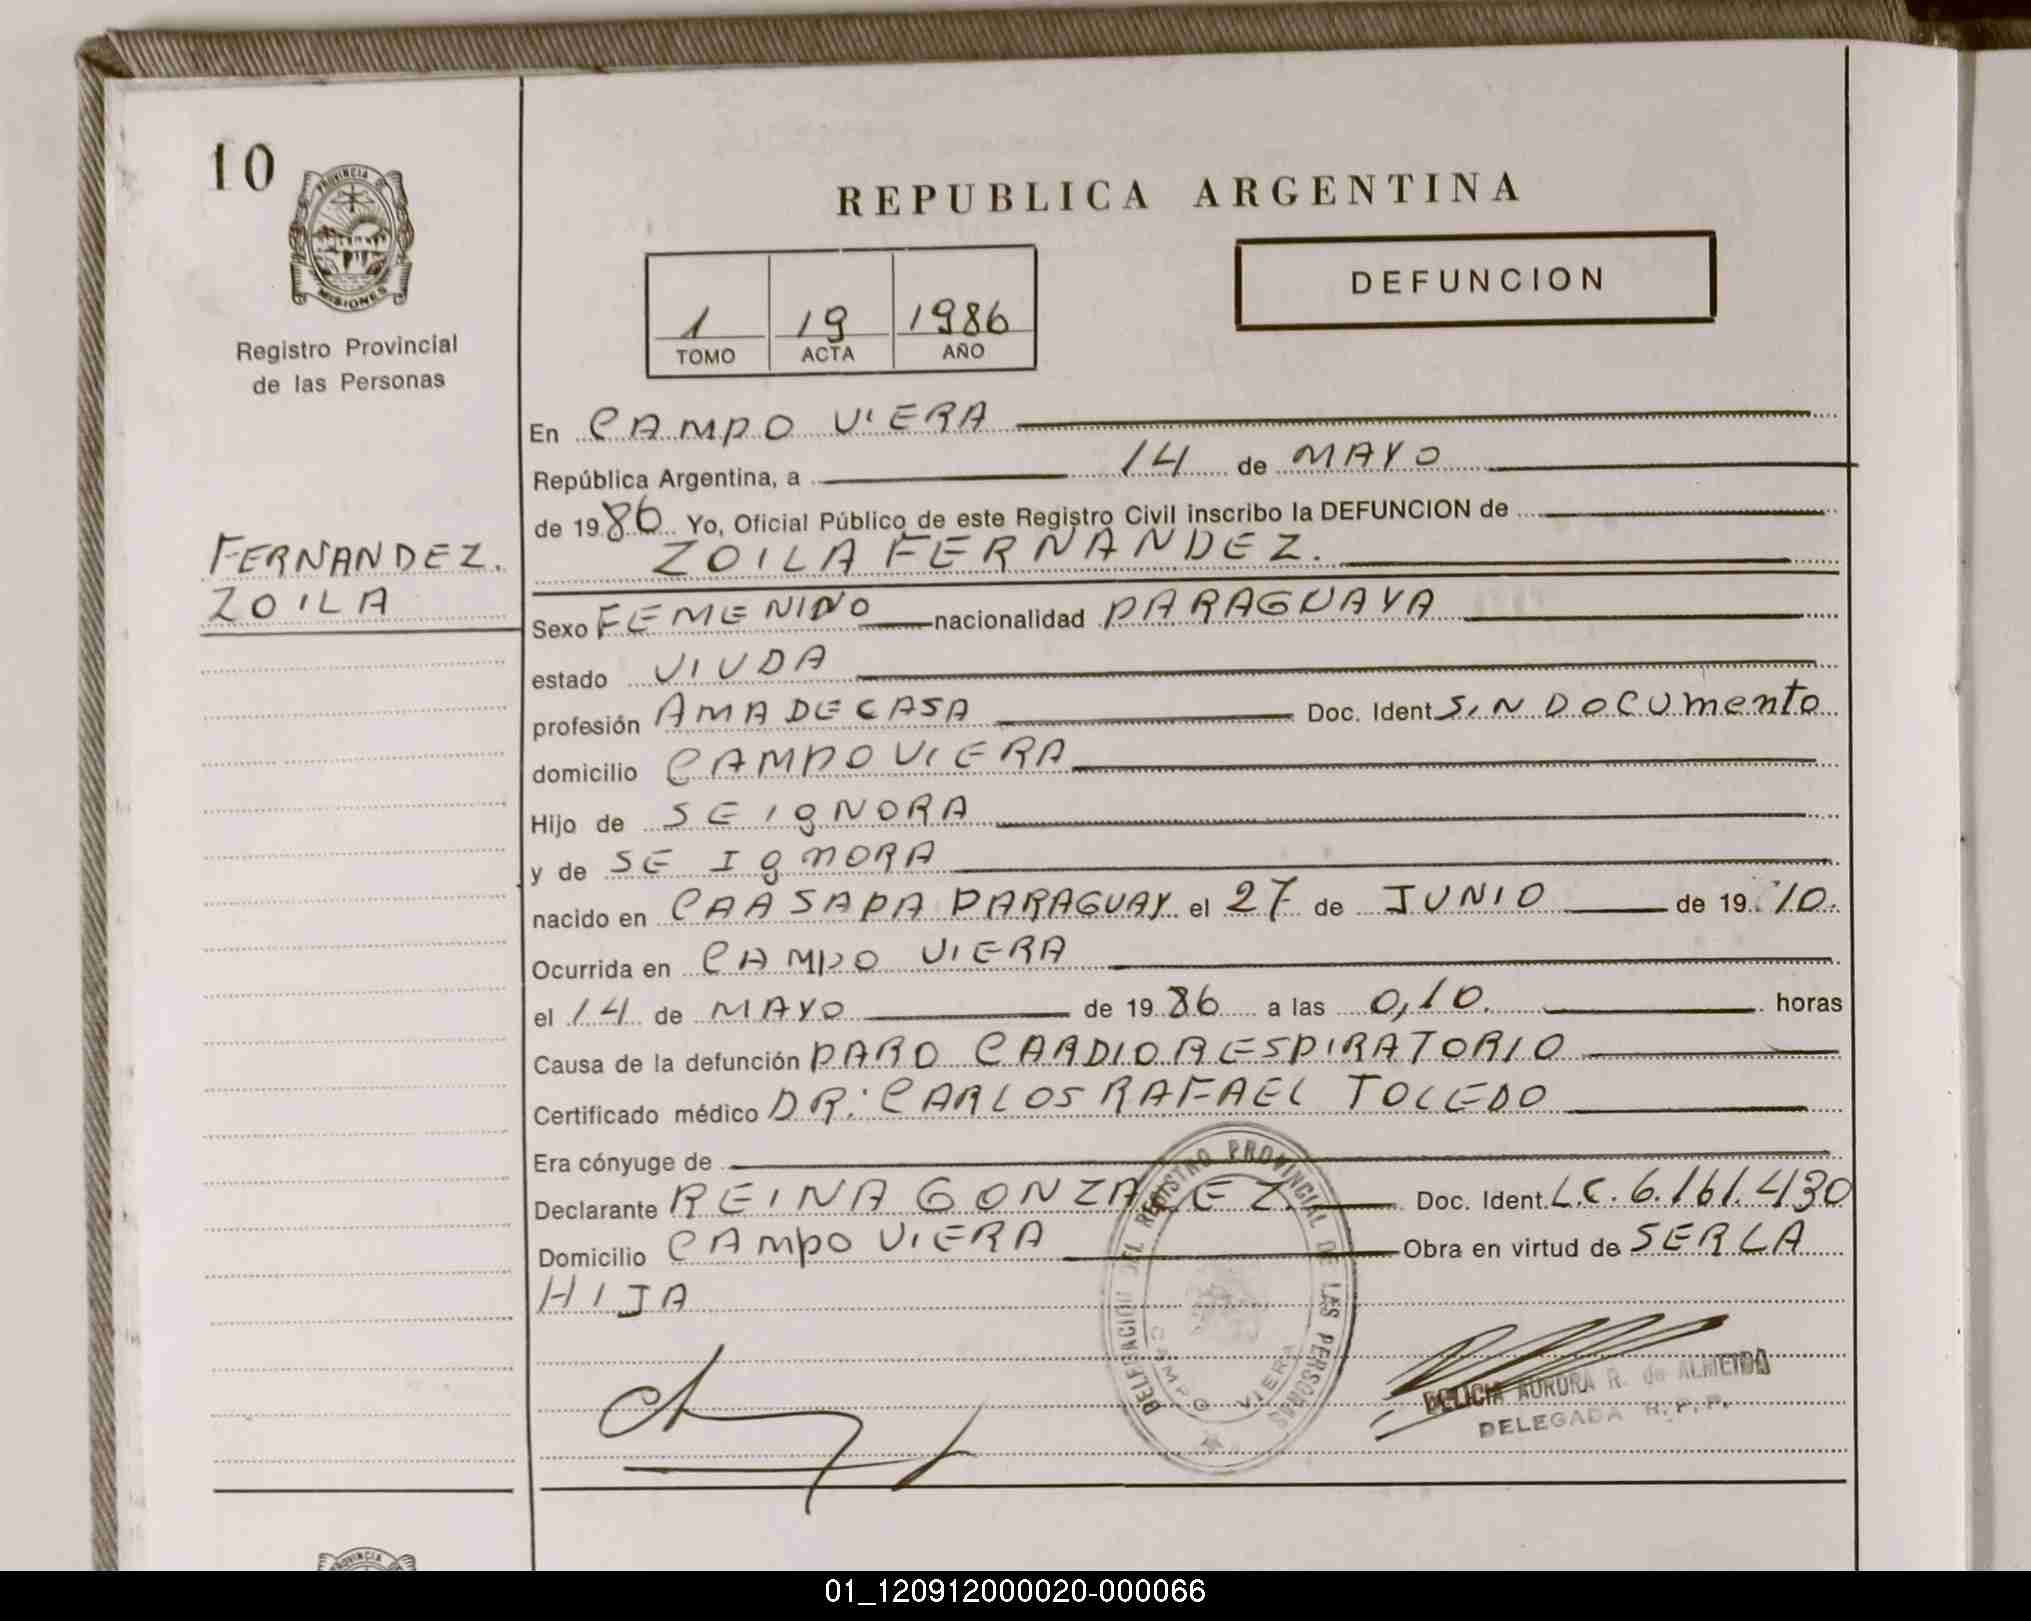 10
PROVINCIA DE
MISIONES
Registro Provincial
de las Personas
FERNANDEZ.
ZOILA
REPUBLICA ARGENTINA
DEFUNCION
1 19 1986
TOMO ACTA AÑO
En CAMPO VIERA
República Argentina, a 14 de MAYO
de 1986 Yo, Oficial Público de este Registro Civil inscribo la DEFUNCION de
ZOILA FERNANDEZ.
Sexo FEMENINO nacionalidad PARAGUAYA
estado VIUDA
profesión AMA DE CASA Doc. Ident SIN DOCUMENTO
domicilio CAMPO VIERA
Hijo de SE IGNORA
y de SE IGNORA
nacido en CAASAPA PARAGUAY el 27 de JUNIO de 1910.
Ocurrida en CAMPO VIERA
el 14 de MAYO de 1986 a las 0,10. horas
Causa de la defunción PARO CARDIORESPIRATORIO
Certificado médico DR: CARLOS RAFAEL TOLEDO
Era cónyuge de
Declarante REINA GONZALEZ Doc. Ident. L.C. 6.161.430
Domicilio CAMPO VIERA Obra en virtud de SER LA
HIJA
DELEGACION DEL REGISTRO PROVINCIAL DE LAS PERSONAS
CAMPO VIERA
DELICIA AURORA R. de ALMEIDA
DELEGADA R.P.P.
PROVINCIA
01_120912000020-000066